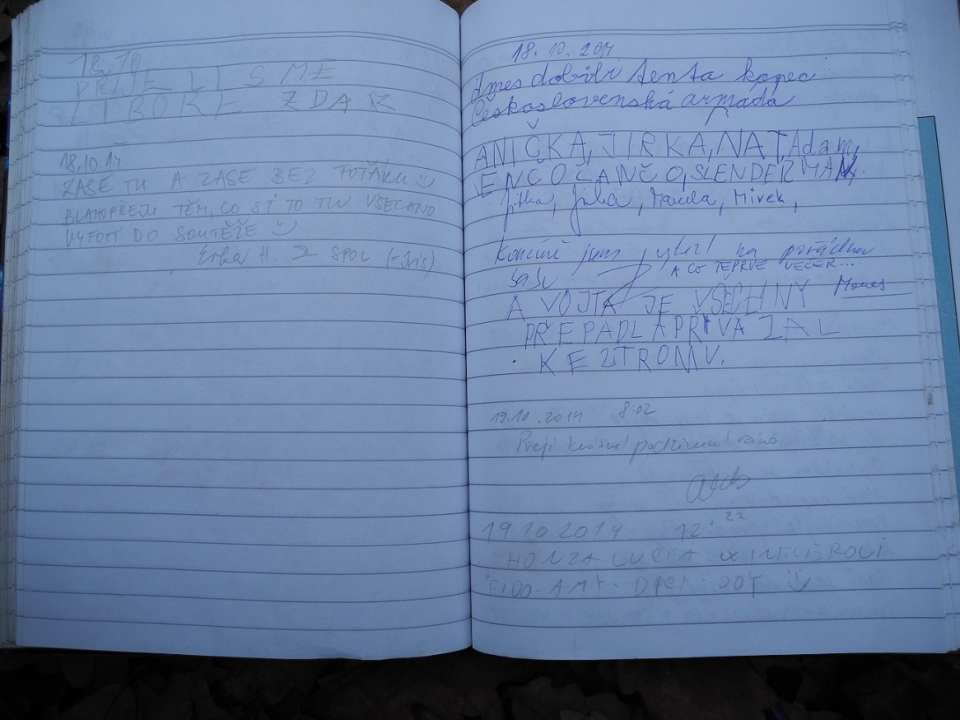 18.10
PŘIJELI SME
LIBOKE ZDAR
18.10.14
ZASE TU A ZASE BEZ FOŤÁKU
BLAHOPŘEJI TĚM, CO SI TO TU VŠECHNO
VYFOTÍ DO SOUTĚŽE
Erka H. Z SPOL
18.10.2014
dnes dobili tento kopec
Československá armáda
ANIČKA, JIRKA, NAT, Adam,
ENČOČANČO, SLENDERMAN.
Jitka, Julia, Manela, Mirek,
Konečně jsme vylezl na pořádnou
A CO TEPRVE VEČER...
A VOJTA JE VŠECHNY
PŘEPADL A PŘIVAZAL
KE STROMU.
19.10.2014 8:02
Přeji krásné podzimní ráno
19.10.2014 12:22
HONZA LUCKA
FIDO-AMY-